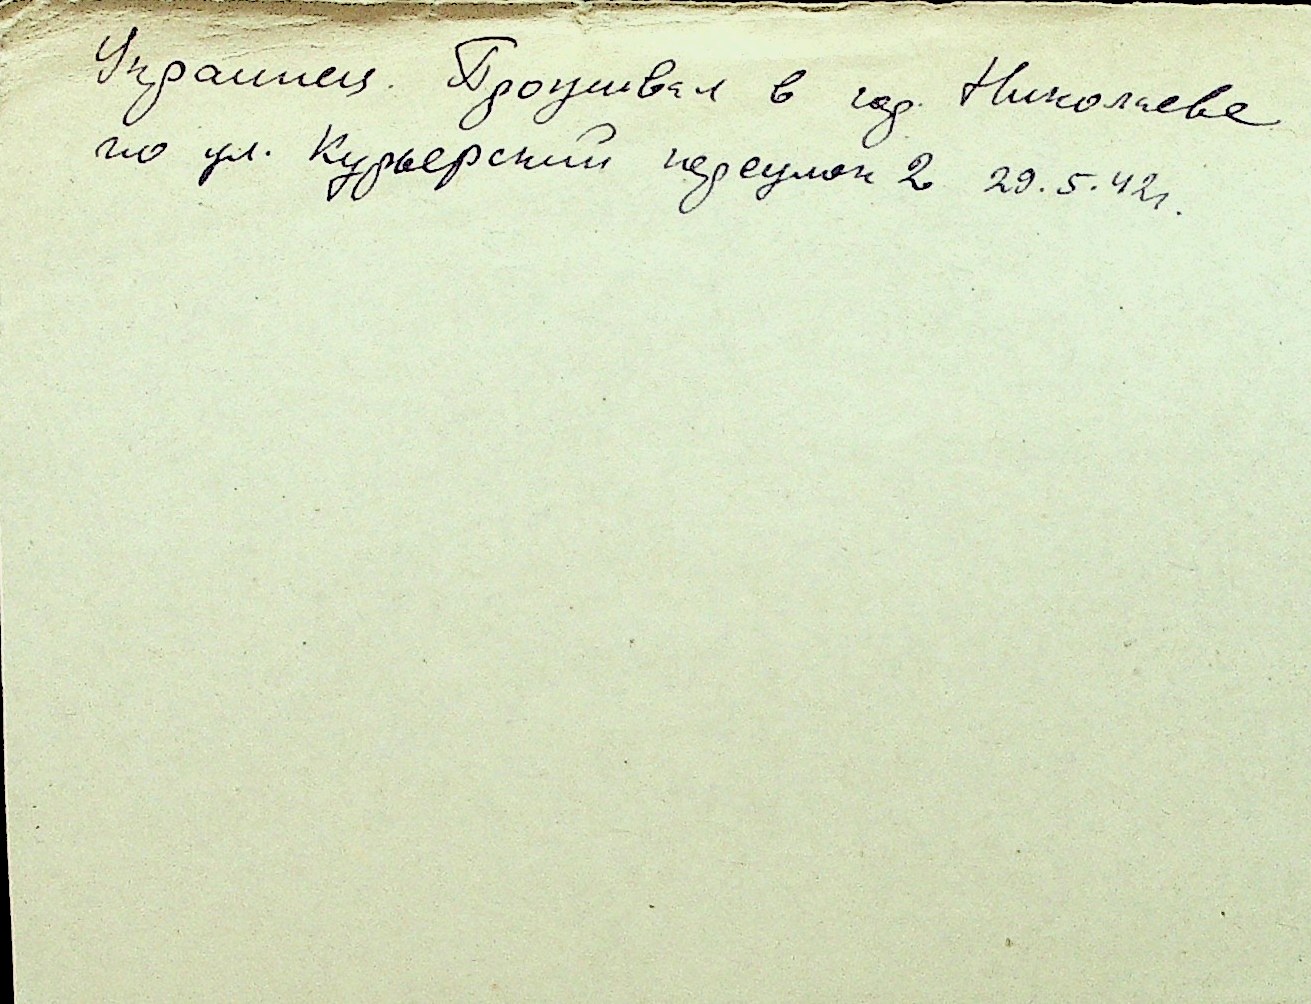 Украинец. Проживал в гор. Николаеве
по ул. Курьерский переулок 2 29.5.42г.